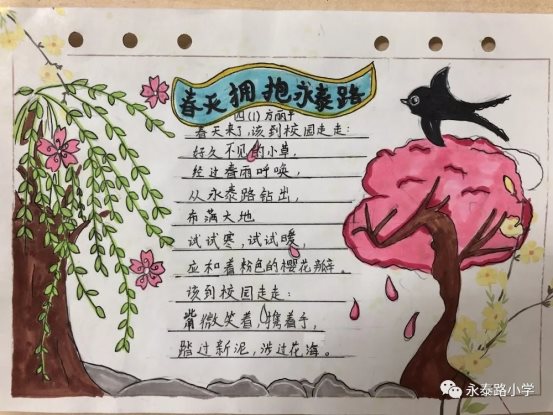 春天拥抱永泰路
四(1)方丽
春天来了,该到校园走走:
好久不见的小草,
经过春雨呼唤,
从永泰路钻出,
布满大地
试试寒,试试暖,
应和着粉色的樱花瓣。
该到校园走走:
微笑着,携着手,
踏过新泥,涉过花海。
永泰路小学